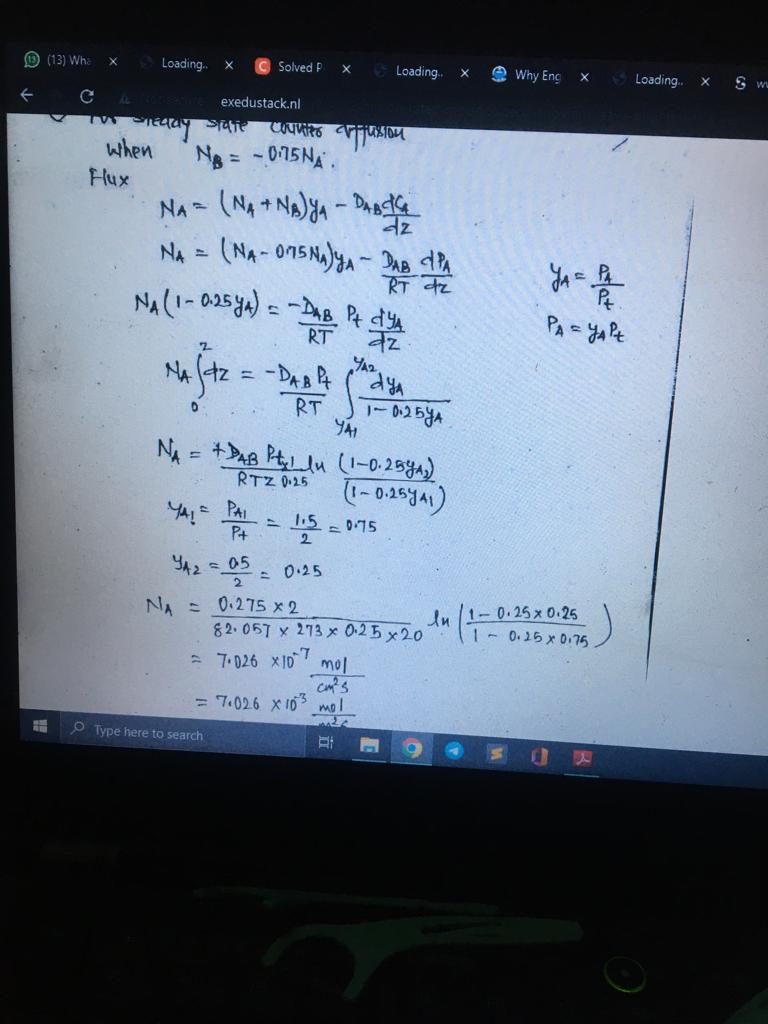 (13) Wha X Loading.. X Solved P X Loading.. X Why Eng X Loading.. X
exedustack.nl
steady state counter diffusion
when N_B = -0.75N_A.
Flux
N_A = (N_A + N_B)y_A - D_AB dC_A/dz
N_A = (N_A - 0.75N_A)y_A - D_AB/RT dP_A/dz
y_A = P_A/P_t
N_A(1-0.25y_A) = -D_AB/RT P_t dy_A/dz
P_A = y_A P_t
N_A ∫_0^z dz = -D_AB P_t/RT ∫_{y_A1}^{y_A2} dy_A/(1-0.25y_A)
N_A = +D_AB P_t x 1/RTZ 0.25 ln (1-0.25y_A2)/(1-0.25y_A1)
y_A1 = P_A1/P_t = 1.5/2 = 0.75
y_A2 = 0.5/2 = 0.25
N_A = 0.275 x 2/82.057 x 273 x 0.25 x 20 ln (1-0.25 x 0.25/1-0.25 x 0.75)
= 7.026 x 10^-7 mol/cm²s
= 7.026 x 10^-3 mol/m²s
Type here to search